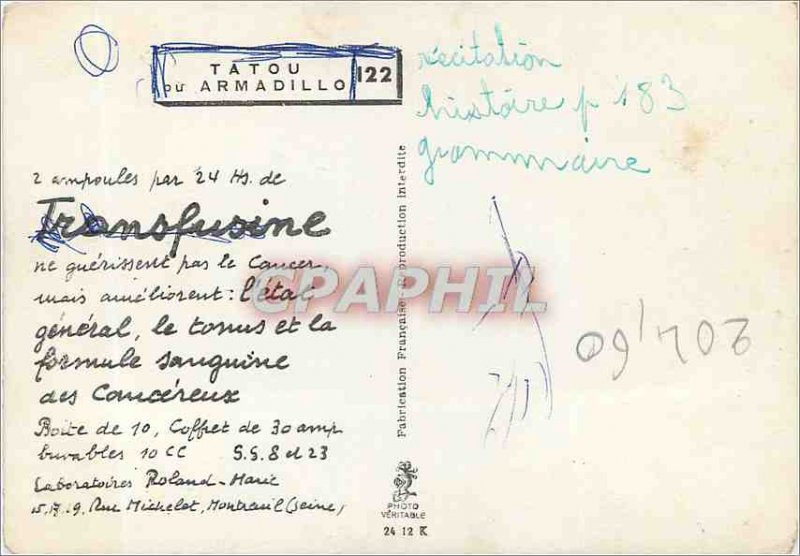 TATOU
OU ARMADILLO
122
récitation
histoire p 183
grammaire
2 ampoules par 24 Hs. de
Transfusine
ne guérissent pas le Cancer,
mais améliorent : l'état
général, le tonus et la
formule sanguine
des Cancéreux
Boite de 10, Coffret de 30 amp
buvables 10 CC S.S. 8 et 23
Laboratoires Roland-Marie
15.17.19, Rue Michelet, Montreuil (Seine)
Fabrication Française - Reproduction interdite
CPAPHIL
PHOTO
VÉRITABLE
24 12 K